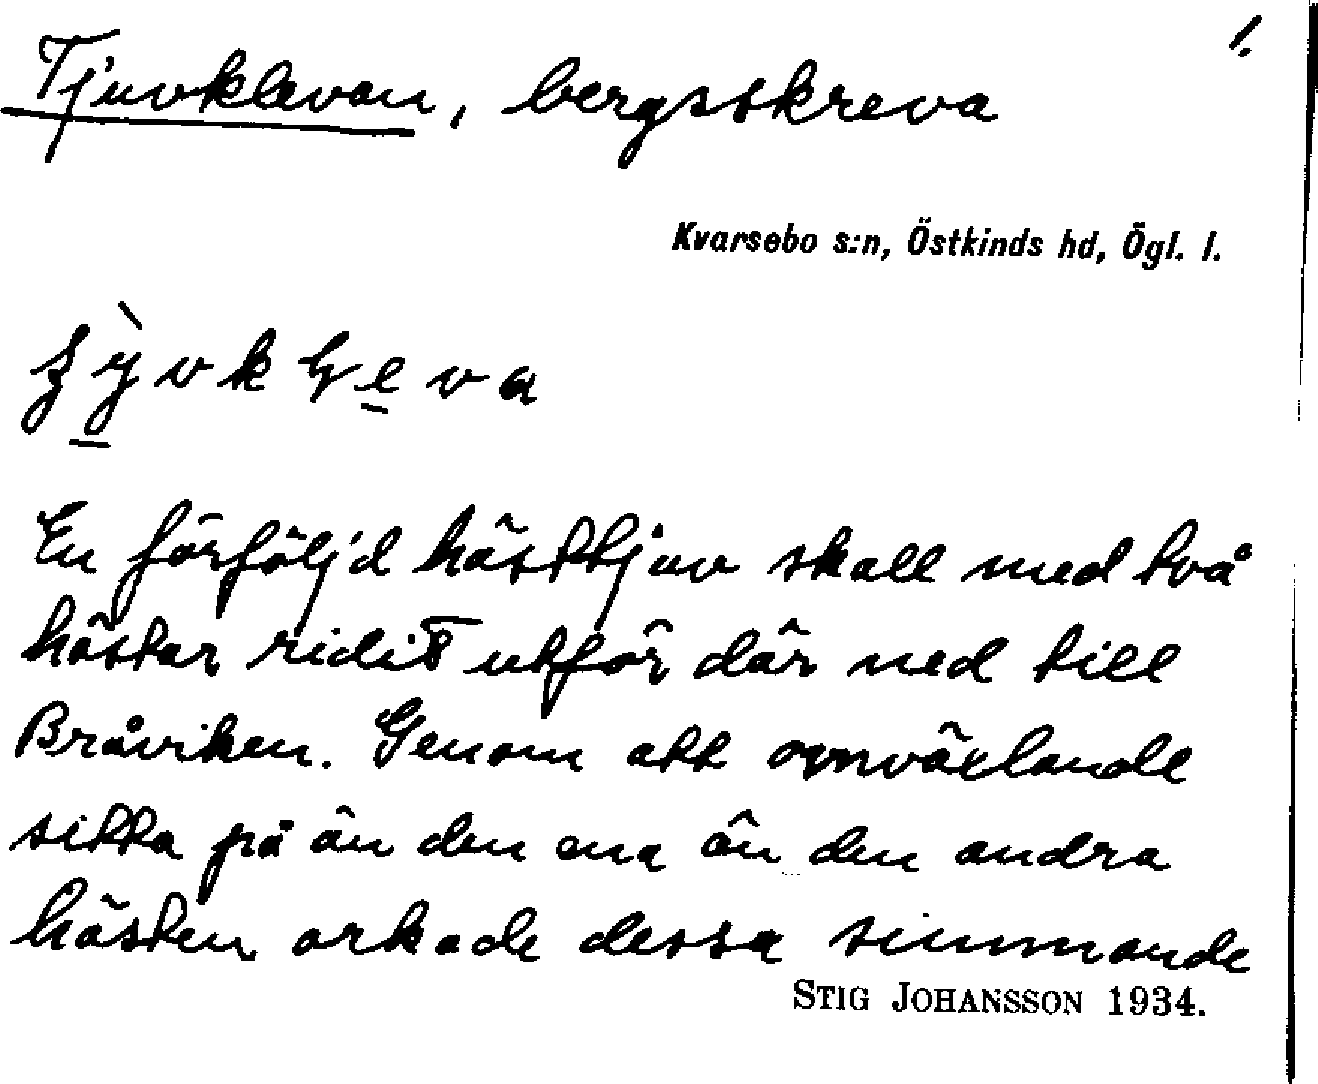 1.
Tjuvklevan, bergsskreva
Kvarsebo s:n, Östkinds hd, Ögl. l.
En förföljd hästtjuv skall med två
hästar ridit utför där ned till
Bråviken. Genom att omväxlande
sitta på än den ena än den andra
hästen orkade dessa simmande
STIG JOHANSSON 1934.